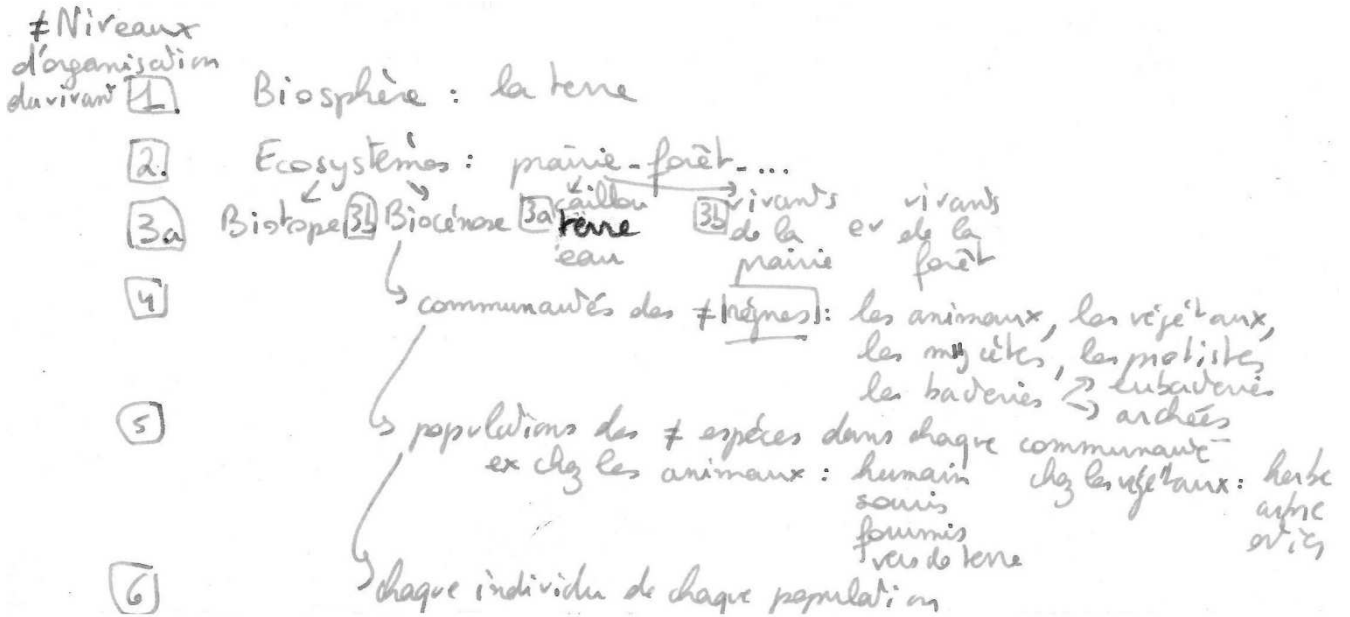 ≠ Niveaux
d'organisation
du vivant 1. Biosphère : la terre
2. Ecosystèmes : prairie - forêt - ...
3a Biotope 3b Biocénose 3a caillou 3b vivants et vivants
terre de la de la
eau prairie forêt
4 communautés des ≠ règnes : les animaux, les végétaux,
les mycètes, les protistes
les bactéries → eubactéries
→ archées
5 populations des ≠ espèces dans chaque communauté
ex chez les animaux : humain chez les végétaux : herbe
souris arbre
fourmis
vers de terre
6 chaque individu de chaque population